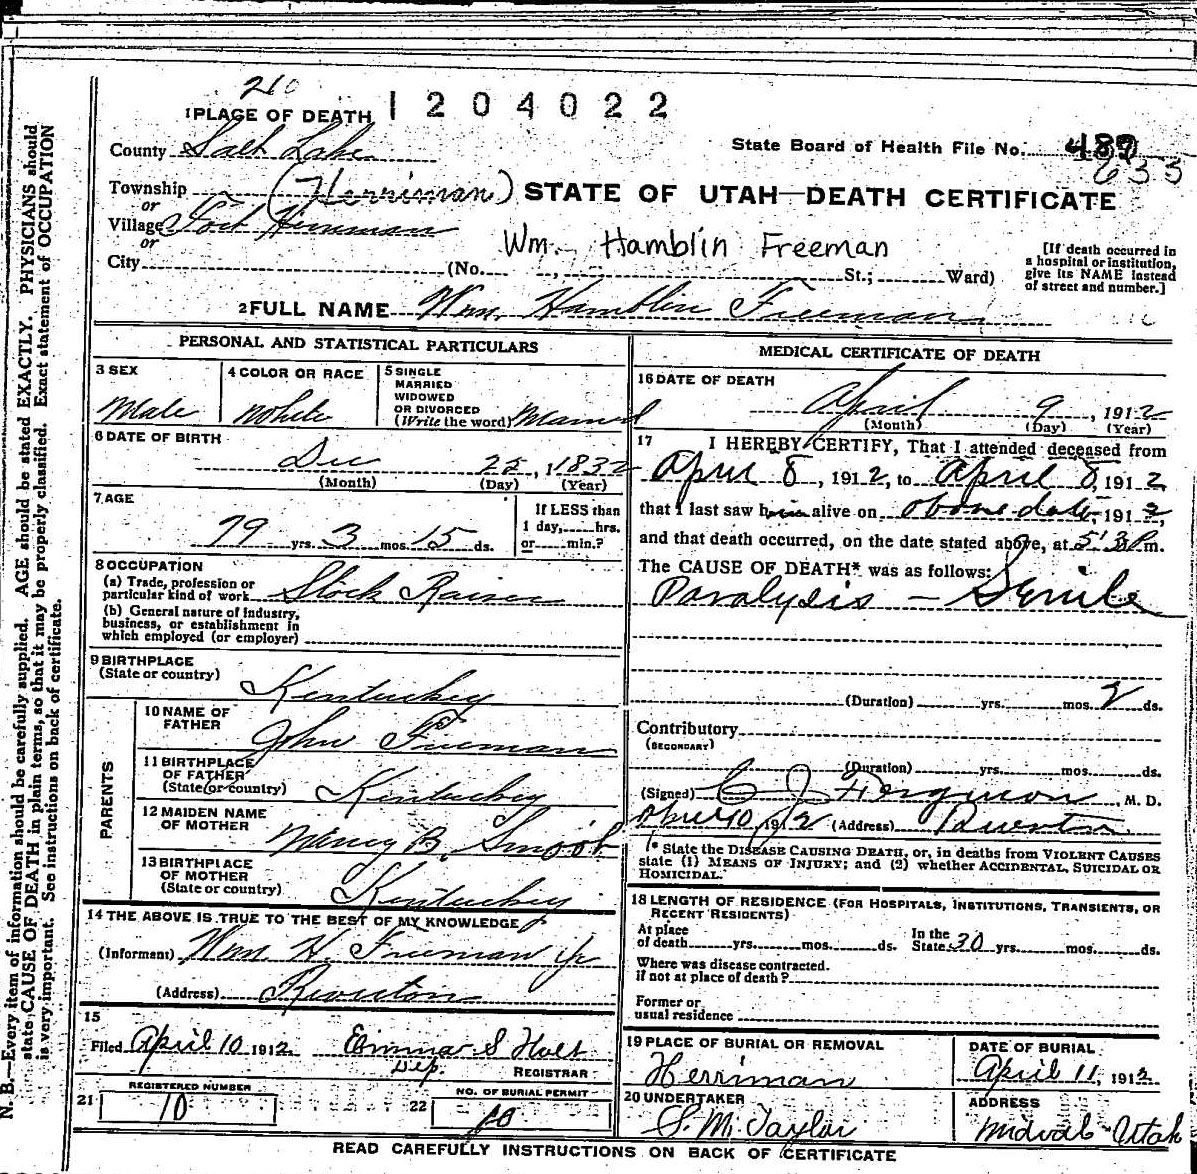 210
1 PLACE OF DEATH 1204022
County Salt Lake
State Board of Health File No. 487
633
Township (Herriman)
or
STATE OF UTAH—DEATH CERTIFICATE
Village Fort Herriman
or
Wm. Hamblin Freeman
City (No. , St.; Ward)
[If death occurred in a hospital or institution, give its NAME instead of street and number.]
2 FULL NAME Wm. Hamblin Freeman
PERSONAL AND STATISTICAL PARTICULARS
3 SEX
Male
4 COLOR OR RACE
White
5 SINGLE
MARRIED
WIDOWED
OR DIVORCED
(Write the word) Married
6 DATE OF BIRTH
Dec 25, 1832
(Month) (Day) (Year)
7 AGE
79 yrs. 3 mos. 15 ds.
If LESS than
1 day, hrs.
or min.?
8 OCCUPATION
(a) Trade, profession or
particular kind of work Stock Raiser
(b) General nature of industry,
business, or establishment in
which employed (or employer)
9 BIRTHPLACE
(State or country) Kentuckey
PARENTS
10 NAME OF
FATHER John Freeman
11 BIRTHPLACE
OF FATHER
(State or country) Kentuckey
12 MAIDEN NAME
OF MOTHER Nancy B. Smoot
13 BIRTHPLACE
OF MOTHER
(State or country) Kentuckey
14 THE ABOVE IS TRUE TO THE BEST OF MY KNOWLEDGE
(Informant) Wm H. Freeman Jr
(Address) Riverton
15
Filed April 10 1912 S Holt
Dep. REGISTRAR
21 REGISTERED NUMBER
10
22 NO. OF BURIAL PERMIT
10
MEDICAL CERTIFICATE OF DEATH
16 DATE OF DEATH
April 9, 1912
(Month) (Day) (Year)
17 I HEREBY CERTIFY, That I attended deceased from
April 8, 1912, to April 8, 1912
that I last saw him alive on above date, 1912,
and that death occurred, on the date stated above, at 5:30 P.m.
The CAUSE OF DEATH* was as follows:
Paralysis — Senile
(Duration) yrs. mos. 2 ds.
Contributory
(SECONDARY)
(Duration) yrs. mos. ds.
(Signed) Ferguson, M. D.
April 10, 1912 (Address) Riverton
* State the DISEASE CAUSING DEATH, or, in deaths from VIOLENT CAUSES
state (1) MEANS OF INJURY; and (2) whether ACCIDENTAL, SUICIDAL OR
HOMICIDAL.
18 LENGTH OF RESIDENCE (FOR HOSPITALS, INSTITUTIONS, TRANSIENTS, OR
RECENT RESIDENTS)
At place
of death yrs. mos. ds.
In the
State 30 yrs. mos. ds.
Where was disease contracted.
if not at place of death?
Former or
usual residence
19 PLACE OF BURIAL OR REMOVAL
Herriman
DATE OF BURIAL
April 11, 1912
20 UNDERTAKER
S. M. Taylor
ADDRESS
Midvale Utah
READ CAREFULLY INSTRUCTIONS ON BACK OF CERTIFICATE
N. B.—Every item of information should be carefully supplied. AGE should be stated EXACTLY. PHYSICIANS should
state CAUSE OF DEATH in plain terms, so that it may be properly classified. Exact statement of OCCUPATION
is very important. See instructions on back of certificate.